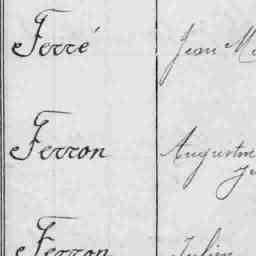 Ferré Jean M
Ferron Augustin
Ferron Julien